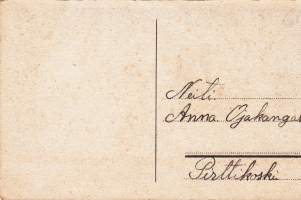 Neiti.
Anna Ojakangas
Perttikoski